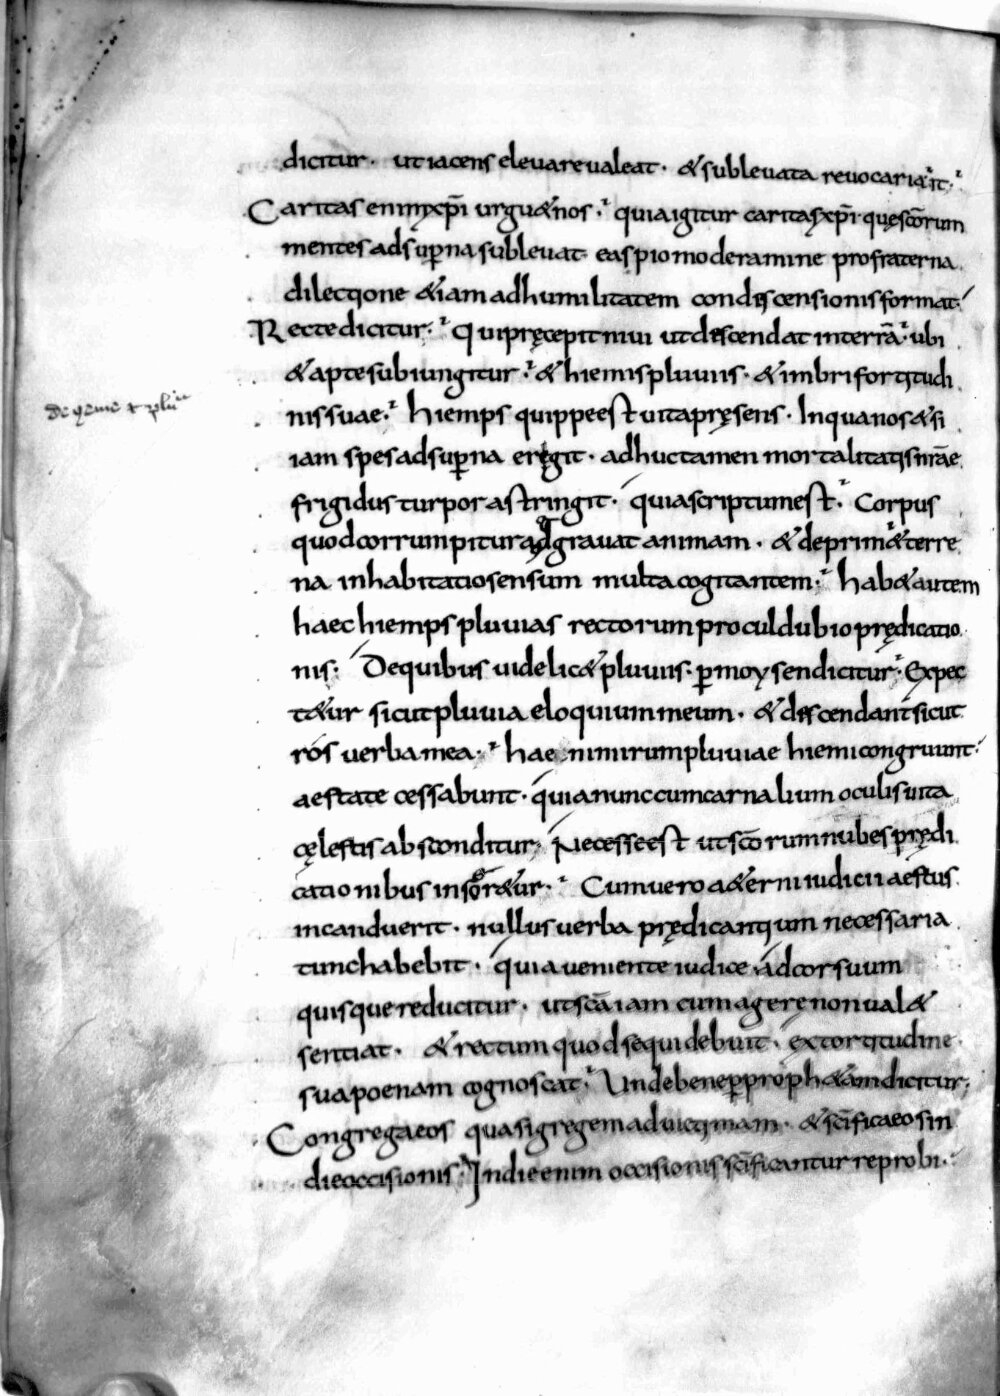 dicitur · ut iacens elevare valeat · & sublevata revocari a
Caritas enim xp̄i urgu& nos · quia igitur caritas xp̄i · quę sc̄orum
mentes ad sup̄na sublevat · eas pio moderamine pro fraterna
dilectione &iam ad humilitatem condescensionis format ·
Recte dicitur · Qui pręcepit nivi ut descendat in terrā · ubi
& apte subiungitur · & hiemis pluviis · & imbri fortitudi
nis suae · hiemps quippe est vita pręsens · In qua nos &si
de yeme & plu
iam spes ad sup̄na eregit · adhuc tamen mortalitatis nr̄ae
frigidus turpor astringit · quia scriptum est · Corpus
quod corrumpitur adgravat animam · & deprim& terre
na inhabitatio sensum multa cogitantem · hab& autem
haec hiemps pluvias rectorum procul dubio prędicatio
nis · De quibus videlic& pluviis · p̄ moysen dicitur · Expec
t&ur sicut pluvia eloquium meum · & descendant sicut
ros verba mea · hae nimirum pluviae hiemi congruunt ·
aestate cessabunt · quia nunc cum carnalium oculis vita
cęlestis absconditur · Necesse est ut sc̄orum nubes prędi
cationibus insor&ur · Cum vero a&erni iudicii aestus
incanduerit · nullus verba prędicantium necessaria
tunc habebit · quia veniente iudice · ad cor suum
quisque reducitur · ut sc̄a iam cum agerę non val&
sentiat · & rectum quod sequi debuit · ex tortitudine
sua poenam cognoscat · Unde bene p̄ proph&am dicitur ·
Congrega eos quasi gregem ad victimam · & sc̄ifica eos in
die occisionis · In die enim occisionis sc̄ificantur reprobi ·